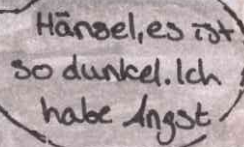 Hänsel, es ist
so dunkel. Ich
habe Angst